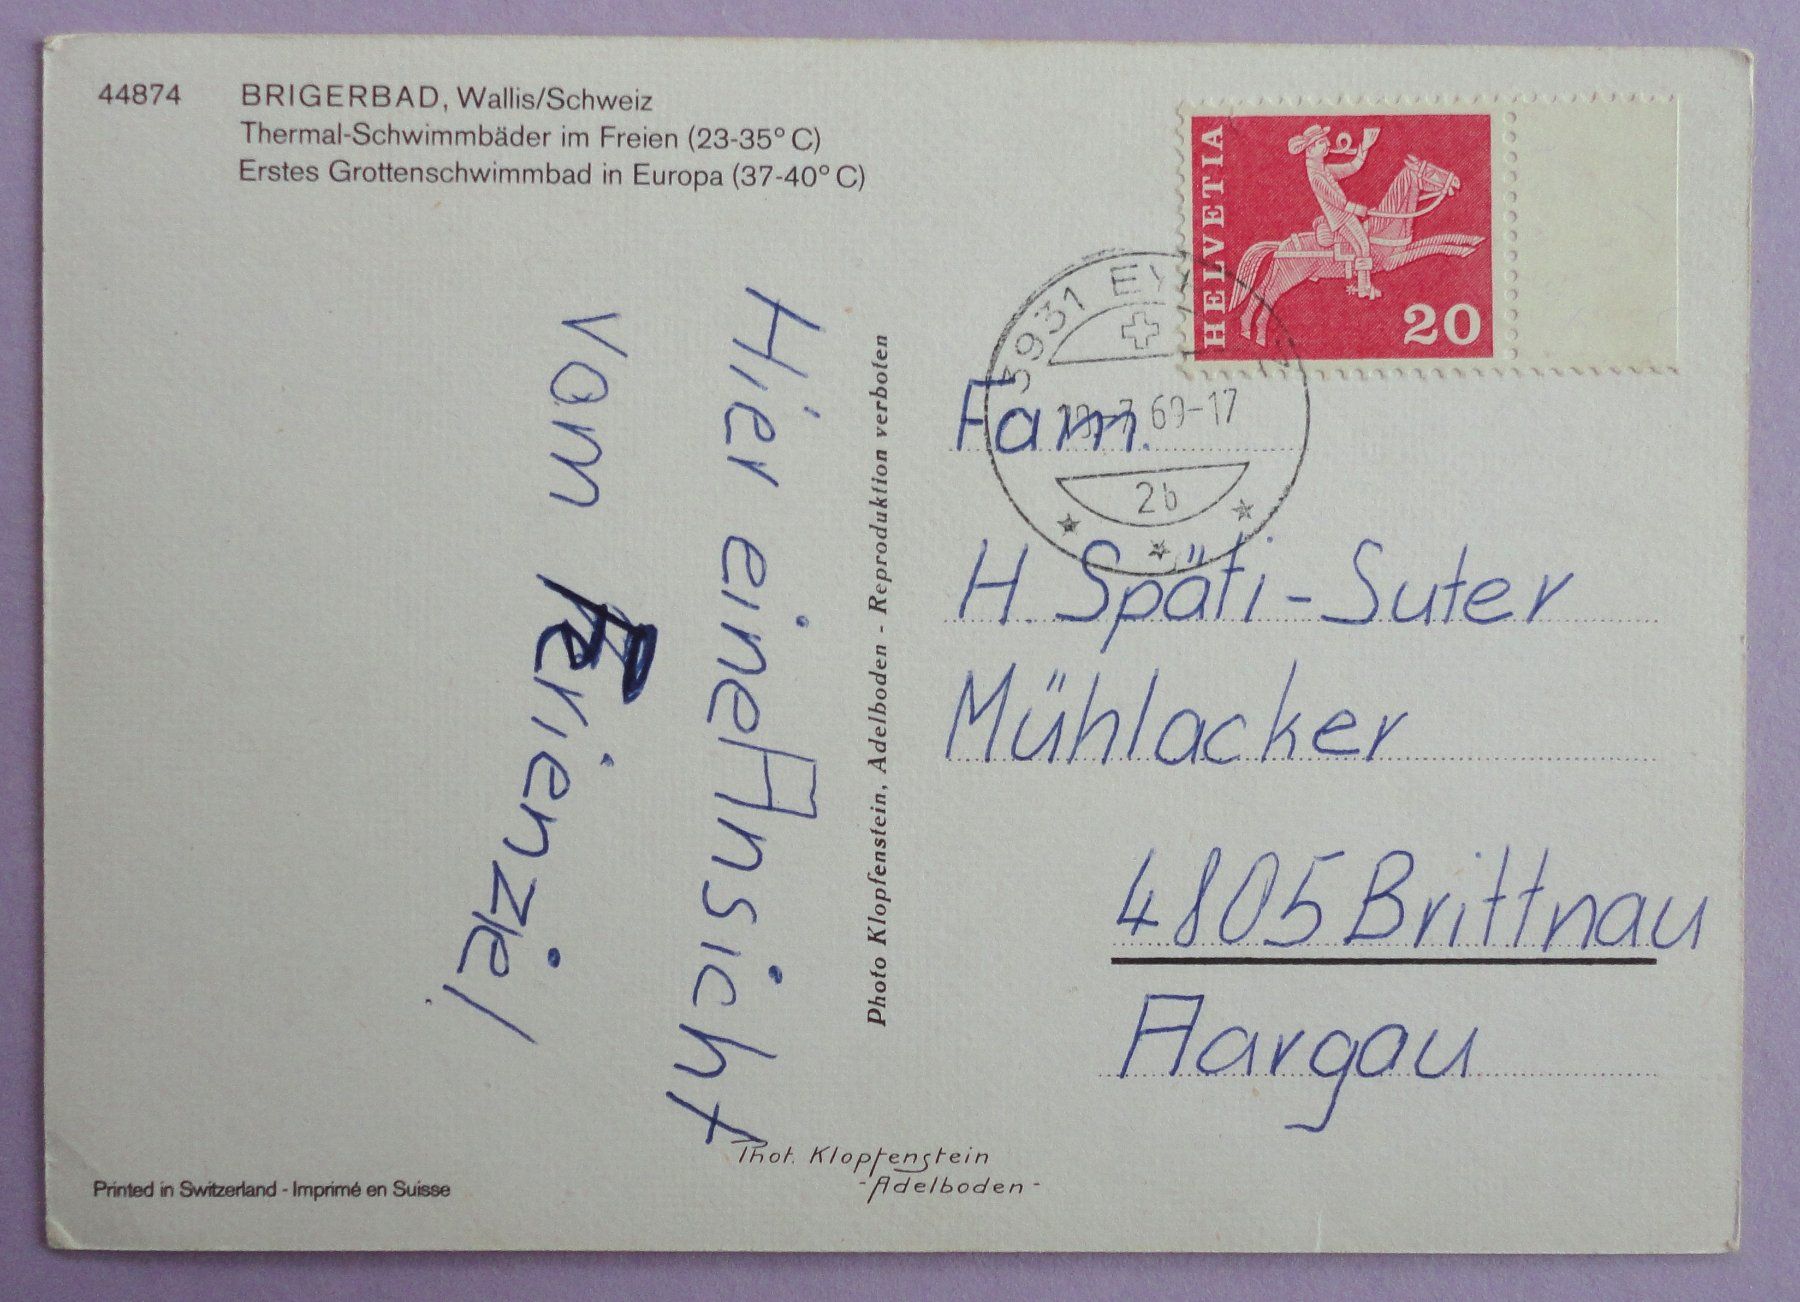 44874 BRIGERBAD, Wallis/Schweiz
Thermal-Schwimmbäder im Freien (23-35° C)
Erstes Grottenschwimmbad in Europa (37-40° C)
Hier eine Ansicht
vom Ferienziel
Photo Klopfenstein, Adelboden - Reproduktion verboten
Printed in Switzerland - Imprimé en Suisse
Phot. Klopfenstein
- Adelboden -
HELVETIA
20
3931
69-17
2b
Fam.
H. Späti-Suter
Mühlacker
4805 Brittnau
Aargau